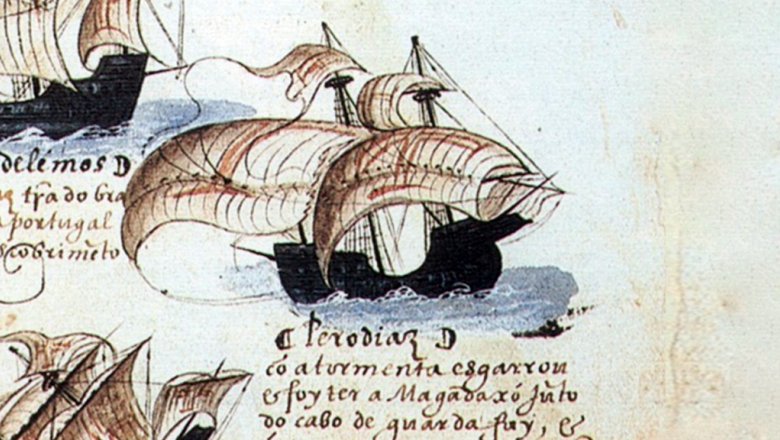 delémos D
trã do bra
portugal
scobrimẽto
C Perodiaz D
cõ a tormenta esgarrou
& foy ter a Magadaxó Jũto
do cabo de guarda fuy, &